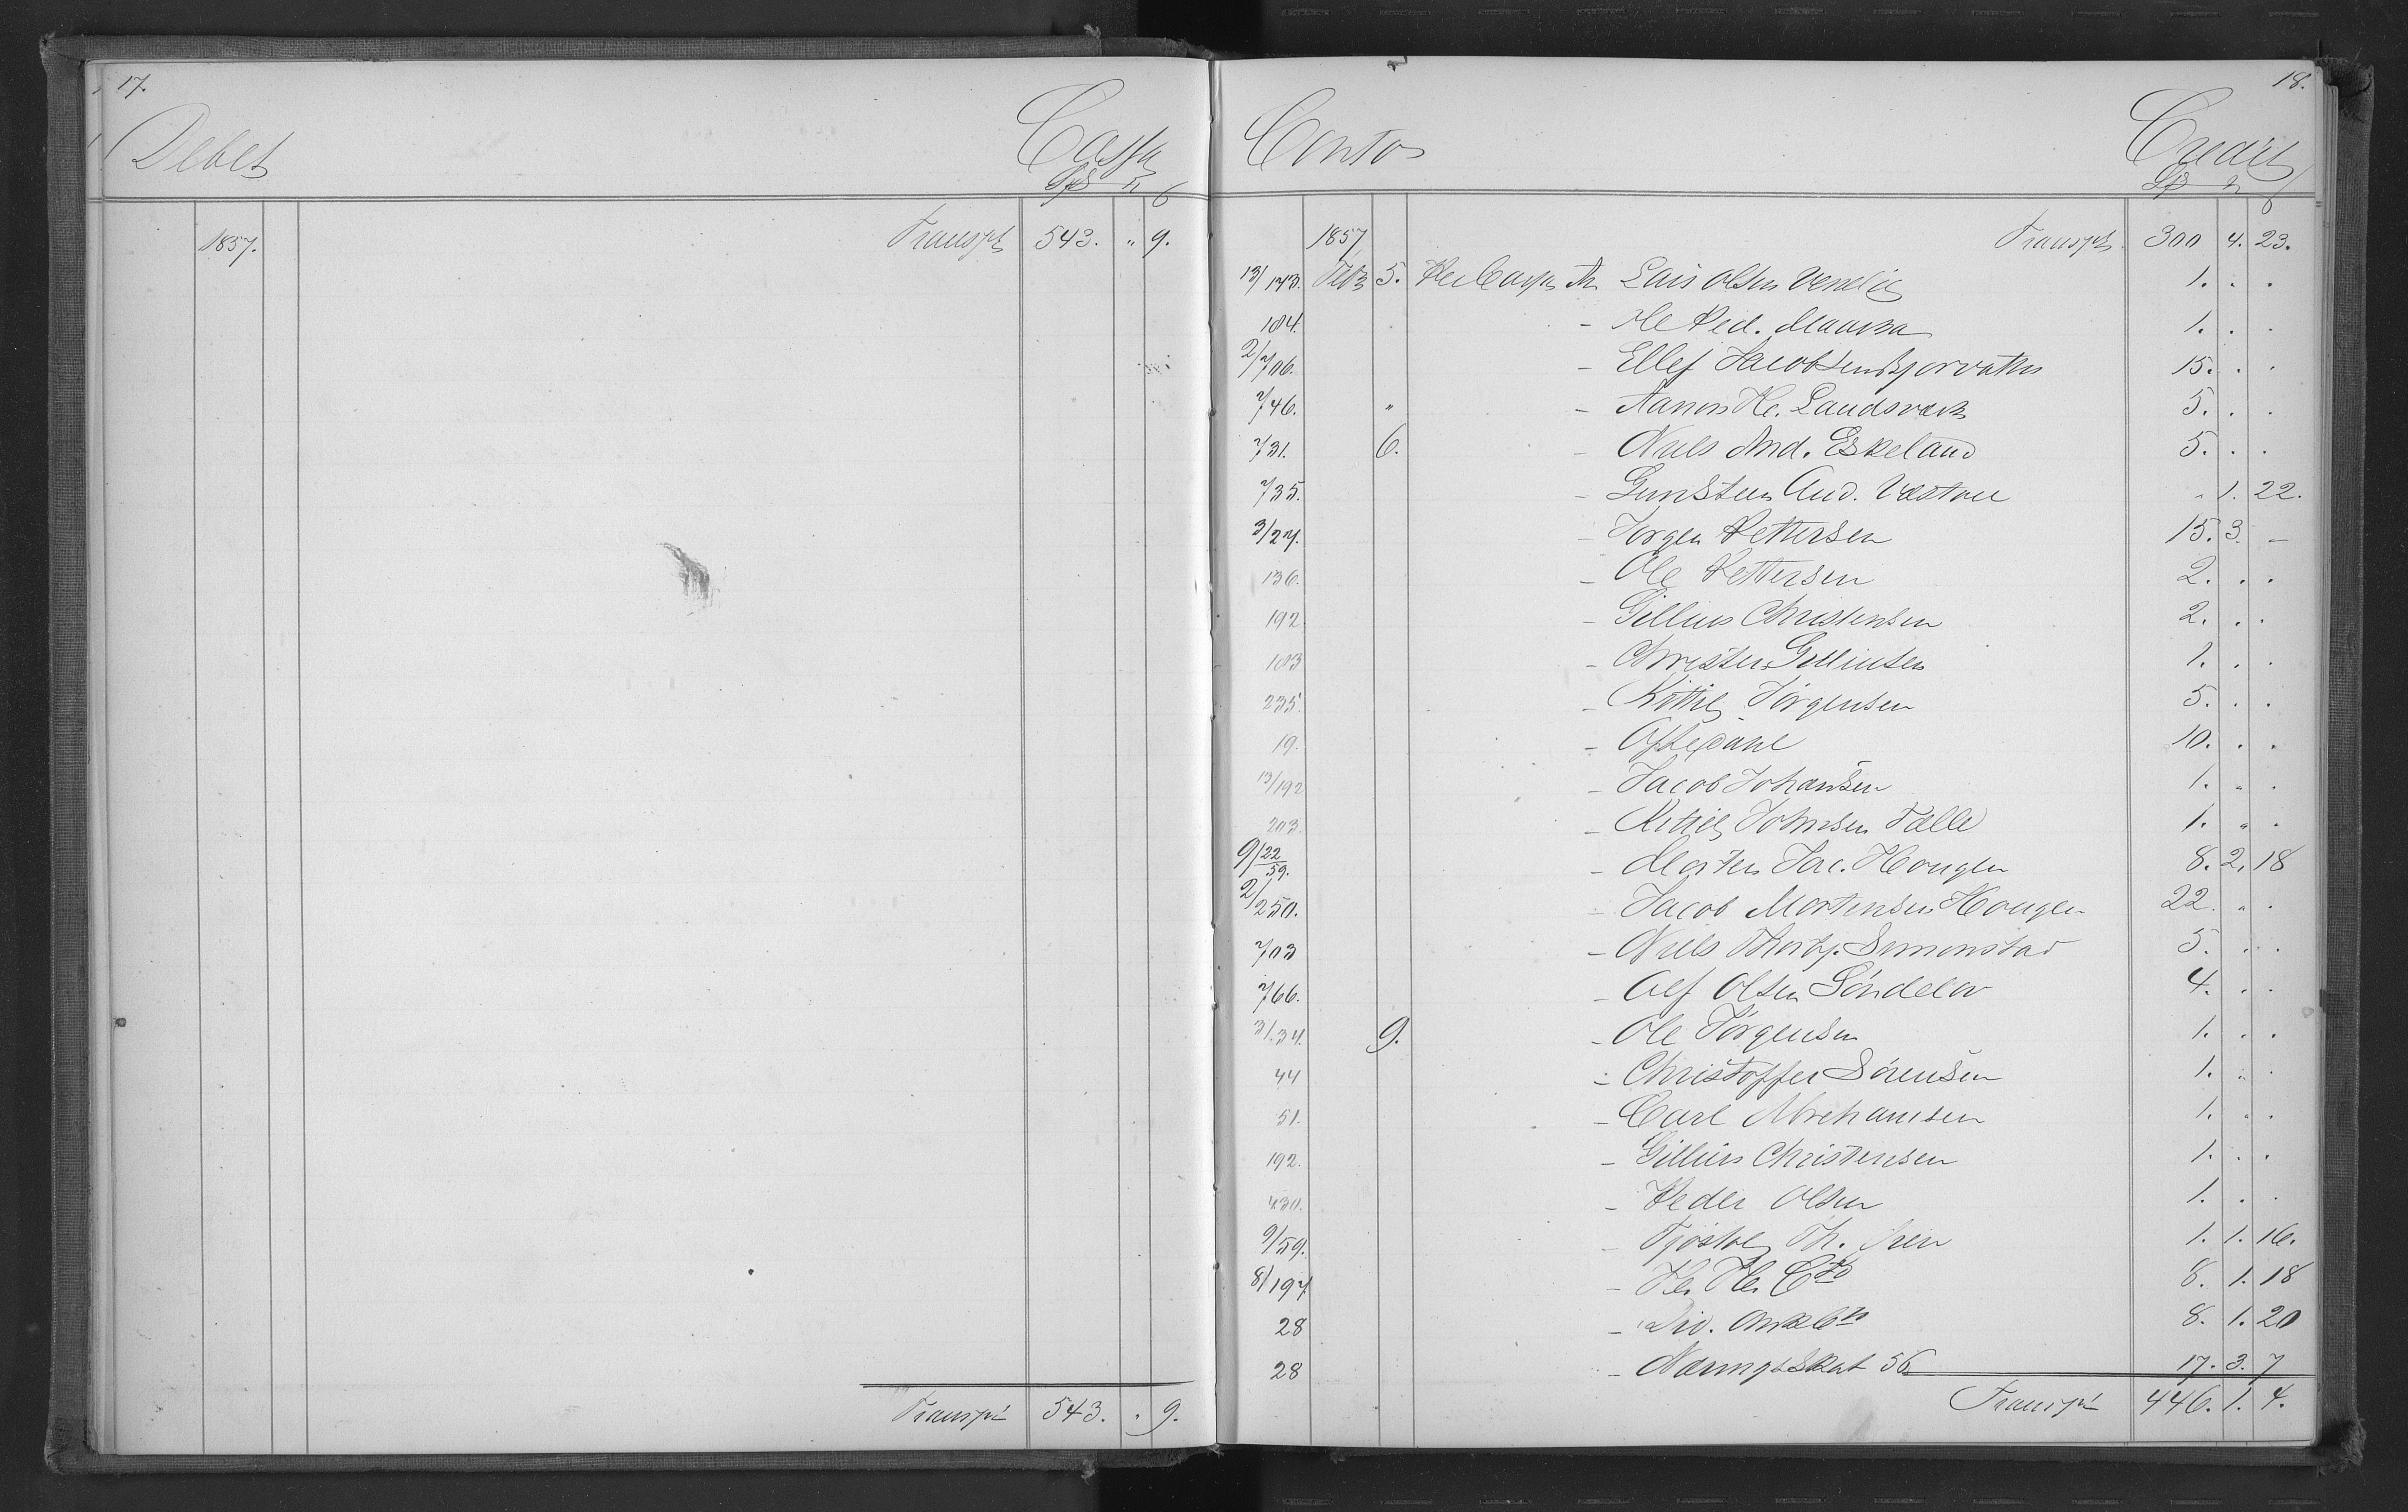 17.
Debet Cassa
Spd
1857. Transpt 543. " 9.
Transpt 543. . 9.
18.
Conto Credit
Spd
1857 Transpt 300 4. 23.
13/173. Febr 5. Per Cassa An Lars Olsen 1. . .
184. - Ole Ped. 1. . .
2/706. - Ellef Jacobsen Bjorvatn 15. . .
746. " - Aanon He. Landsværk 5. . .
731. 6. - Niels And. Eskeland 5. . .
735. - Gunsteen And. " 1. 22.
3/27. - Jørgen Pettersen 15. 3. -
136. - Ole Pettersen 2. . .
192 - Gillius Christensen 2. . .
103 - Christen Gilliusen 1. . .
235. - Kittil Jørgensen 5. . .
19. - Oftedahl 10. . .
13/192 - Jacob Johansen 1. " .
203. - Kittil Johnsen Fælle 1. " .
9/22/59. - Morten Jac. Hougen 8. 2. 18
2/250. - Jacob Mortensen Hougen 22. " .
703 - Niels Thorbj. Simonstad 5. . .
766. - Alf Olsen Søndelov 4. . .
3/34. 9. - Ole Jørgensen 1. . .
44 - Christoffer Sørensen 1. . .
51. - Carl Abrehamsen 1. " .
192. - Gillius Christensen 1. . .
430. - Peder Olsen 1. . .
9/59. - Tjøstol Th. 1. 1. 16.
8/197 - 8. 1. 18
28 - Div. 8. 1. 20
28 - Næringsskat 56 17. 3. 7
Transpt 446. 1. 4.